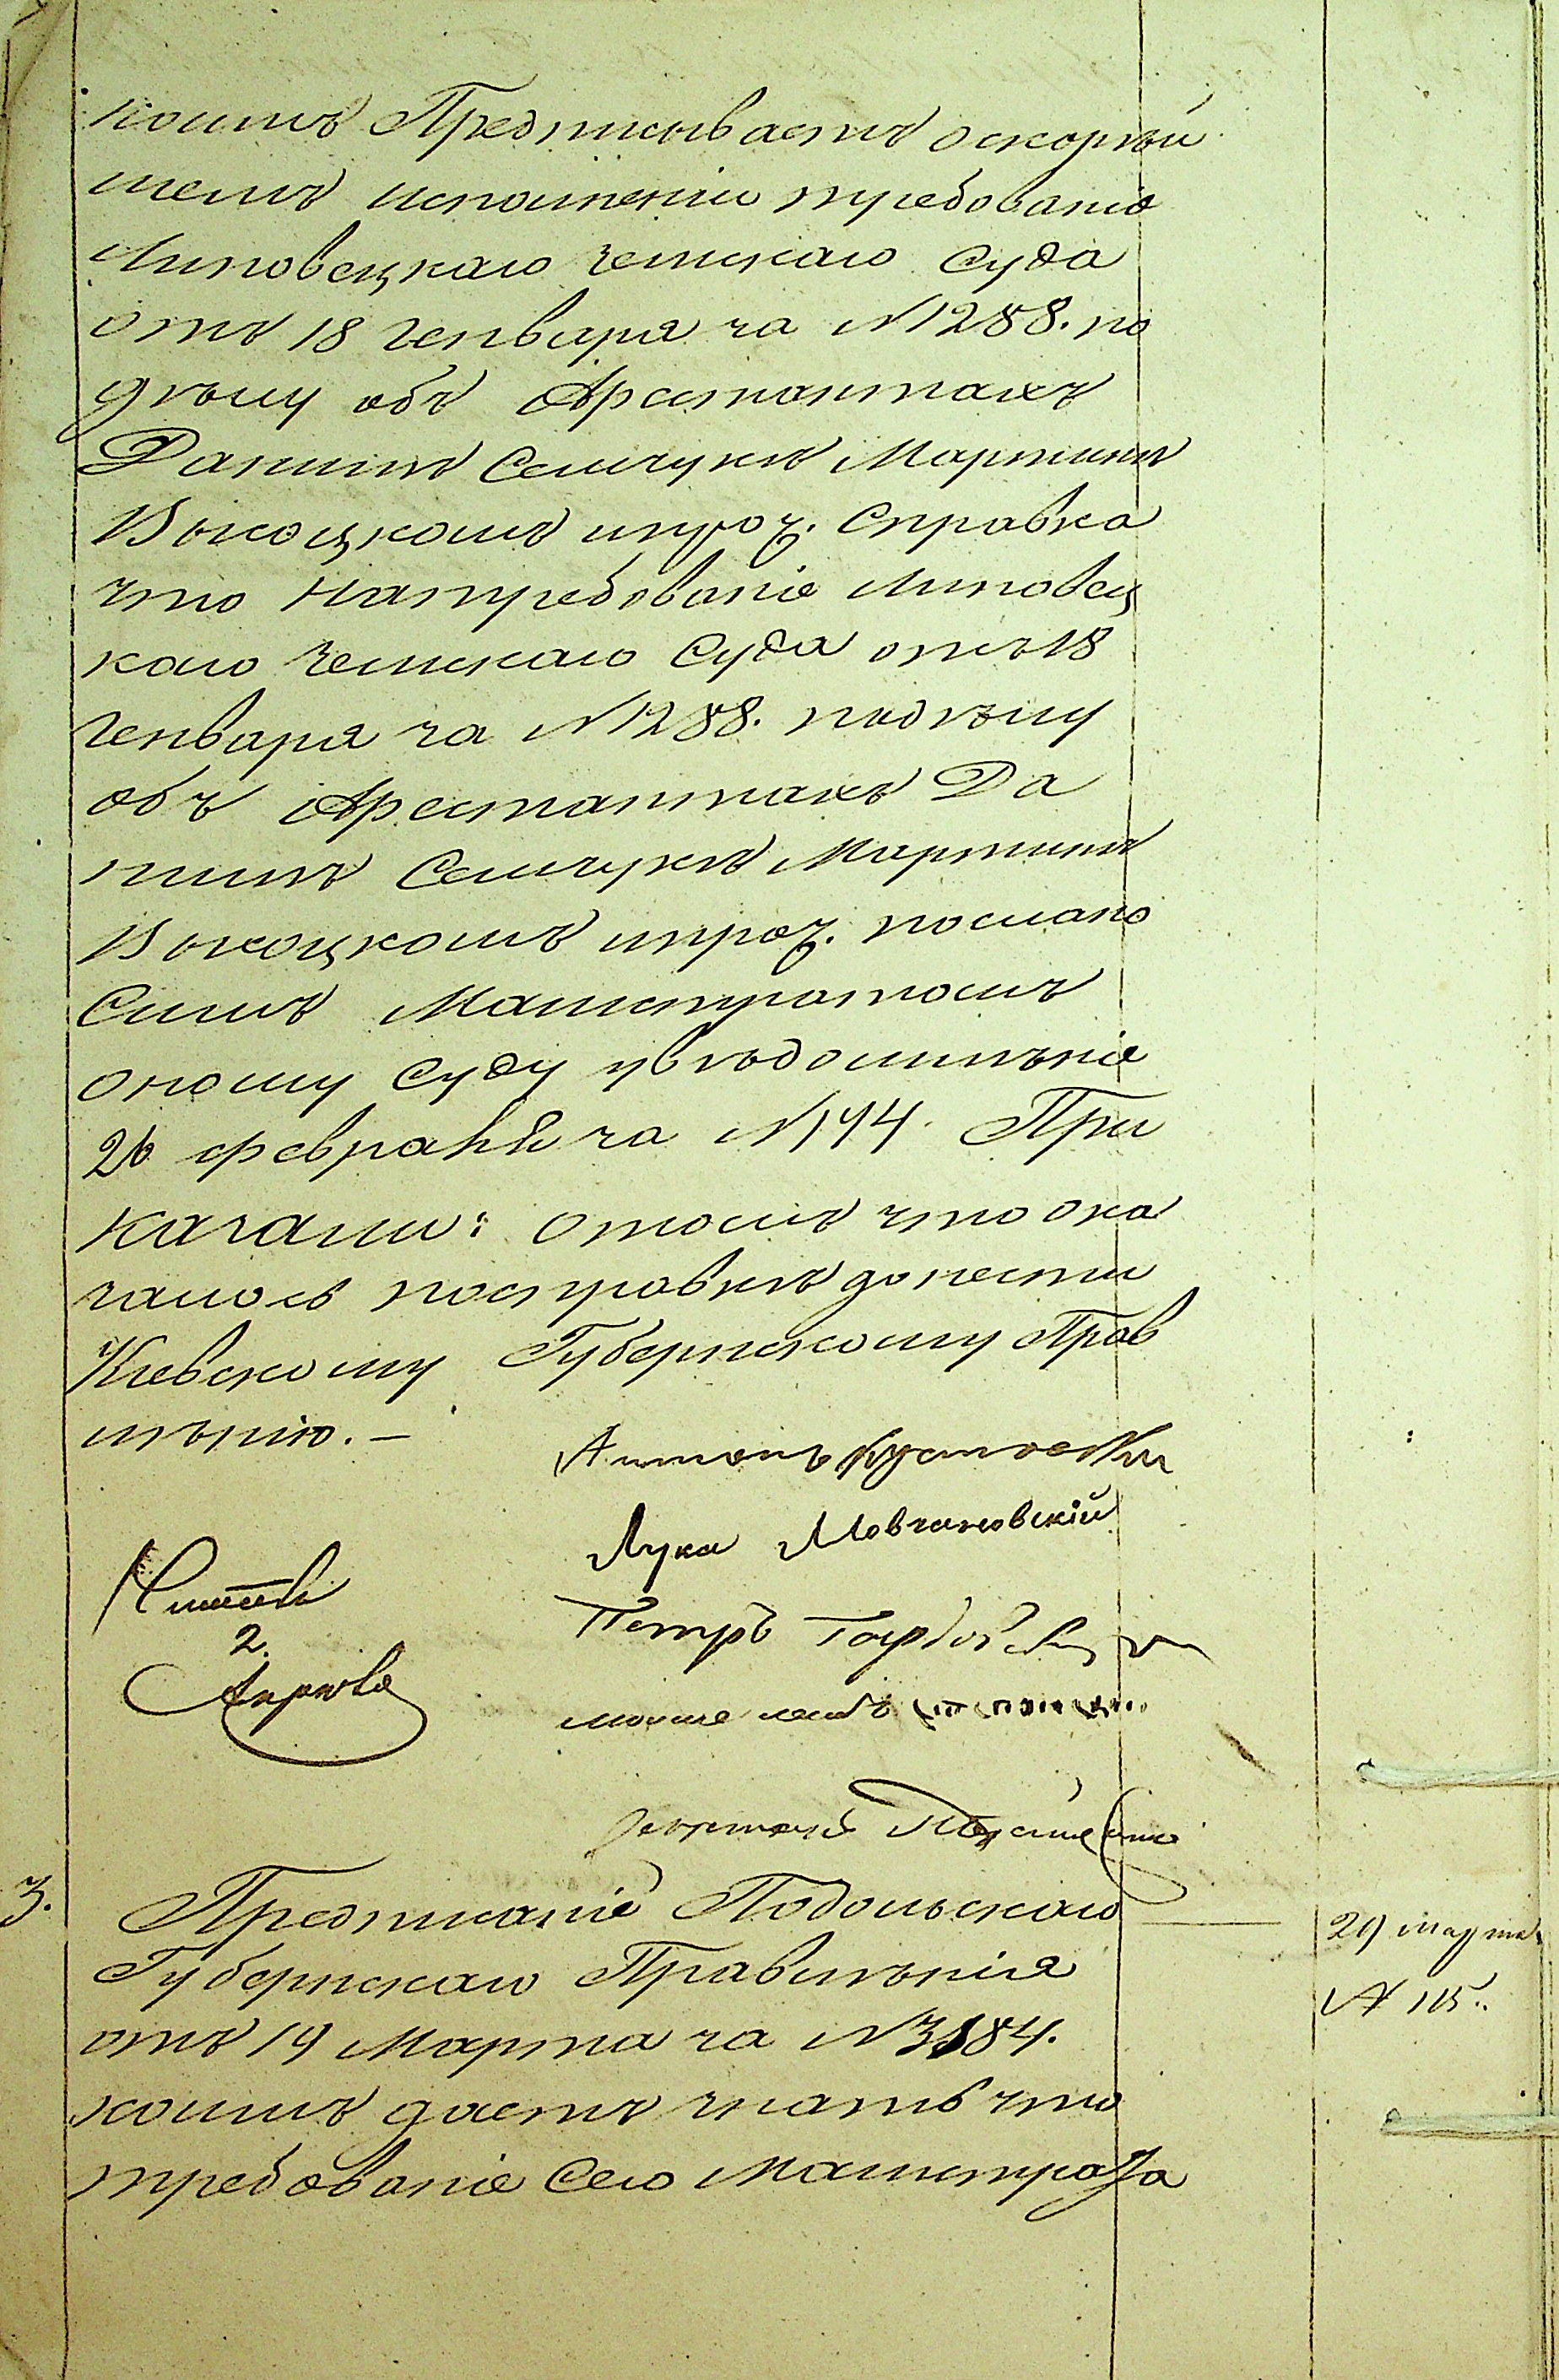 коимъ Предписываетъ оскорѣй
шемъ исполненіи требованіе
Липовецкаго Земскаго Суда
отъ 18 Генваря за №1288. по
дѣлу объ Арестантахъ
Данилѣ Семчукѣ Мартинѣ
Высоцкомъ ипроч. Справка
что Натребованіе Липовец
каго Земскаго Суда отъ 18
Генваря за №1288. подѣлу
объ Арестантахъ Да
нилѣ Семчукѣ Мартинѣ
Высоцкомъ ипроч. послано
Симъ Магистратомъ
оному Суду увѣдомлѣніе
26 февраля за №144. При
казали: отомъ что ока
залось посправкѣ донести
Кіевскому Губернскому Прав
лѣнію. —
Антонъ
Лука Мовчановскій
2.
Апрѣля
Петръ
3.
Предписаніе Подольскаго
29 марта
Губернскаго Правилѣнія
№ 115.
отъ 19 Марта за №3184.
коимъ даетъ знать что
требованіе Сего Магистрата